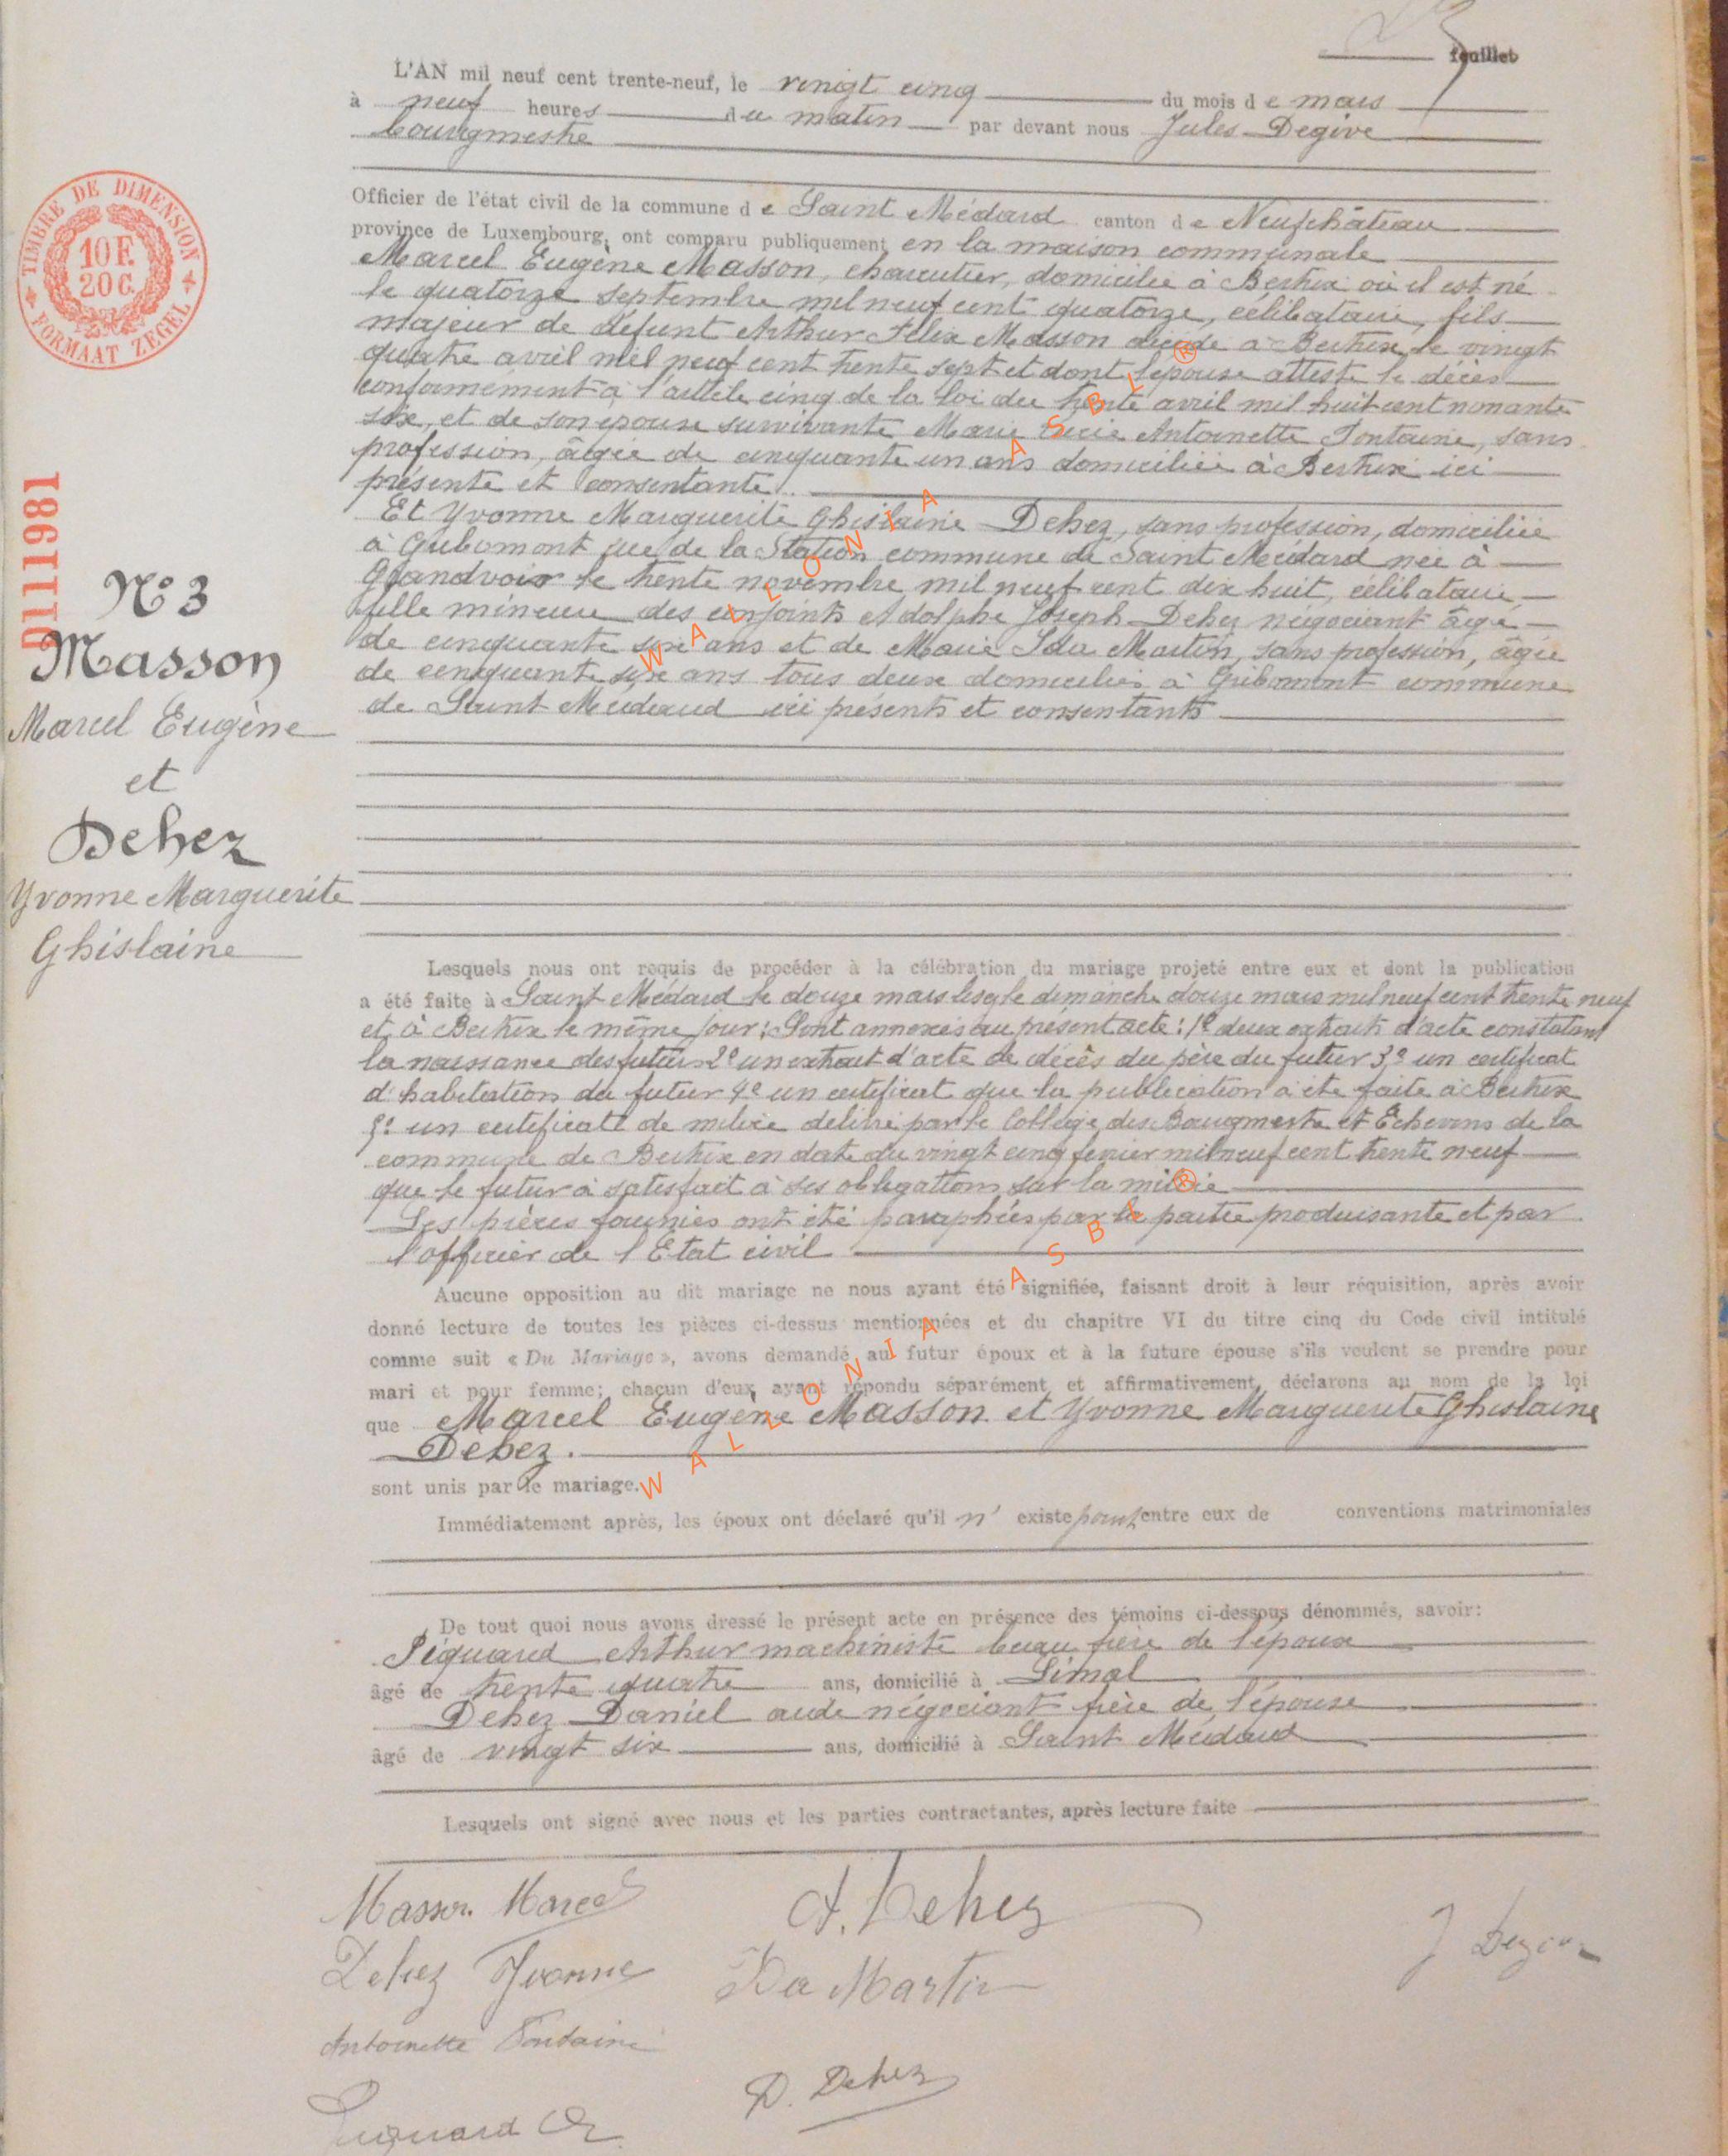 feuillet
L'AN mil neuf cent trente-neuf, le vingt cinq du mois de mars
à neuf heures du matin par devant nous Jules Degive
bourgmestre
Officier de l'état civil de la commune de Saint Médard canton de Neufchâteau
province de Luxembourg, ont comparu publiquement en la maison communale
Marcel Eugène Masson, charcutier, domicilié à Bertrix où il est né
le quatorze septembre mil neuf cent quatorze, célibataire, fils
majeur de défunt Arthur Félix Masson décédé à Bertrix le vingt
quatre avril mil neuf cent trente sept et dont l'épouse atteste le décès
conformément à l'article cinq de la loi du trente avril mil huit cent nonante
six, et de son épouse survivante Marie Antoinette Fontaine, sans
profession, âgée de cinquante un ans domiciliée à Bertrix ici
présente et consentante.
Et Yvonne Marguerite Ghislaine Dehez, sans profession, domiciliée
à Gribomont rue de la Station commune de Saint Médard née à
Grandvoir le trente novembre mil neuf cent dix huit, célibataire,
fille mineure des conjoints Adolphe Joseph Dehez négociant âgé
de cinquante six ans et de Marie Ida Martin, sans profession, âgée
de cinquante six ans tous deux domiciliés à Gribomont commune
de Saint Médard ici présents et consentants
TIMBRE DE DIMENSION
10 F.
20 C.
FORMAAT ZEGEL
9111981
N° 3
Masson
Marcel Eugène
et
Dehez
Yvonne Marguerite
Ghislaine
Lesquels nous ont requis de procéder à la célébration du mariage projeté entre eux et dont la publication
a été faite à Saint Médard le douze mars le dimanche douze mars mil neuf cent trente neuf
et à Bertrix le même jour; Sont annexés au présent acte: 1° deux extraits d'acte constatant
la naissance des futurs 2° un extrait d'acte de décès du père du futur 3° un certificat
d'habitation du futur 4° un certificat que la publication a été faite à Bertrix
5° un certificatt de milice délivré par le Collège des Bourgmestre et Echevins de la
commune de Bertrix en date du vingt cinq fevrier mil neuf cent trente neuf
que le futur a satisfait à ses obligations sur la milice
Les pièces fournies ont été paraphées par la partie produisante et par
l'officier de l'Etat civil
Aucune opposition au dit mariage ne nous ayant été signifiée, faisant droit à leur réquisition, après avoir
donné lecture de toutes les pièces ci-dessus mentionnées et du chapitre VI du titre cinq du Code civil intitulé
comme suit « Du Mariage », avons demandé au futur époux et à la future épouse s'ils veulent se prendre pour
mari et pour femme; chacun d'eux ayant répondu séparément et affirmativement, déclarons au nom de la loi
que Marcel Eugène Masson et Yvonne Marguerite Ghislaine
Dehez.
sont unis par le mariage.
Immédiatement après, les époux ont déclaré qu'il n' existe point entre eux de conventions matrimoniales
De tout quoi nous avons dressé le présent acte en présence des témoins ci-dessous dénommés, savoir:
Piquard Arthur machiniste beau frère de l'époux
âgé de trente quatre ans, domicilié à Limal
Dehez Daniel aide négociant frère de l'épouse
âgé de vingt six ans, domicilié à Saint Médard
Lesquels ont signé avec nous et les parties contractantes, après lecture faite
Masson Marcel
A. Dehez
J Degive
Dehez Yvonne
Ida Martin
Antoinette Fontaine
D. Dehez
WALLONIA ASBL ®
WALLONIA ASBL ®